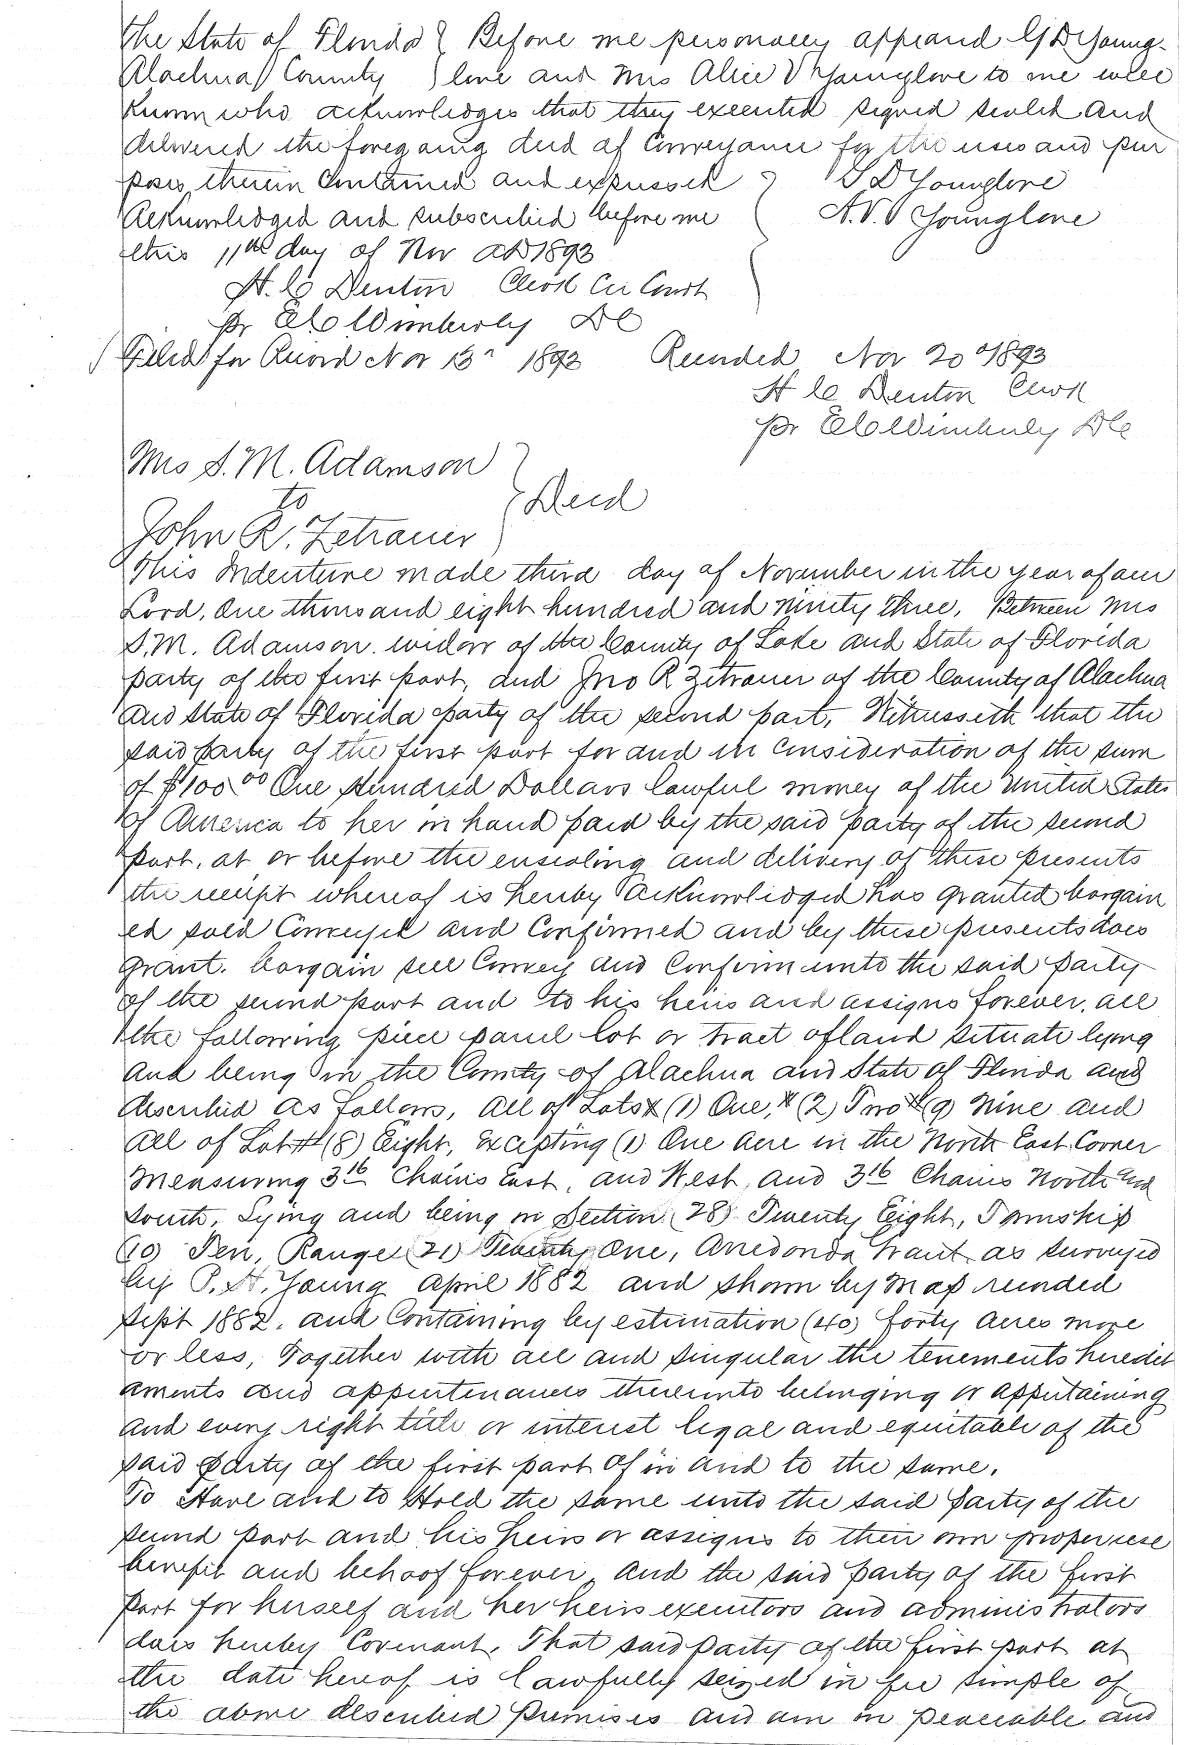 The State of Florida } Before me personally appeared G D Young-
Alachua County } love and Mrs Alice V Younglove to me well
Known who acknowledges that they executed signed sealed and
delivered the foregoing deed of Conveyance for the uses and pur
poses therein Contained and expressed } G D Younglove
Acknowledged and subscribed before me } A. V. Younglove
this 11th day of Nov AD 1893
H. C Denton Clerk Cir Court
pr E C Wimberly DC
Filed for Record Nov 13th 1893 Recorded Nov 20th 1893
H C Denton Clerk
pr E C Wimberly DC
Mrs S. M. Adamson
to } Deed
John R. Zetrauer
This Indenture made third day of November in the year of our
Lord, One thousand eight hundred and ninety three, Between Mrs
S. M. Adamson widow of the County of Lake and State of Florida
party of the first part, and Jno R Zetrauer of the County of Alachua
and State of Florida party of the second part, Witnesseth that the
said party of the first part for and in consideration of the sum
of $100.00 One Hundred Dollars lawful money of the United States
of America to her in hand paid by the said party of the second
part, at or before the ensealing and delivery of these presents
the receipt whereof is hereby acknowledged has granted bargain
ed sold Conveyed and Confirmed and by these presents does
grant. bargain sell Convey and Confirm unto the said party
of the second part and to his heirs and assigns forever, all
the following piece parcel lot or tract of land situate lying
and being in the County of Alachua and State of Florida and
described as follows, all of Lots # (1) One, # (2) Two # (9) Nine and
all of Lot # (8) Eight, Excepting (1) One acre in the North East Corner
measuring 3 16 Chains East, and West, and 3 16 Chains North and
south, Lying and being in Section (28) Twenty Eight, Township
(10) Ten, Range (21) Twenty One, Arredonda Grant as surveyed
by P. H. Young April 1882 and shown by Map recorded
Sept 1882, and Containing by estimation (40) forty acres more
or less, Together with all and singular the tenements heredit
aments and appurtenances thereunto belonging or appertaining
and every right title or interest legal and equitable of the
said party of the first part of in and to the same.
To Have and to Hold the same unto the said party of the
second part and his heirs or assigns to their own proper use
benefit and behoof forever, and the said party of the first
part for herself and her heirs executors and administrators
does hereby Covenant, That said party of the first part at
the date hereof is lawfully seized in fee simple of
the above described premises and am in peaceable and